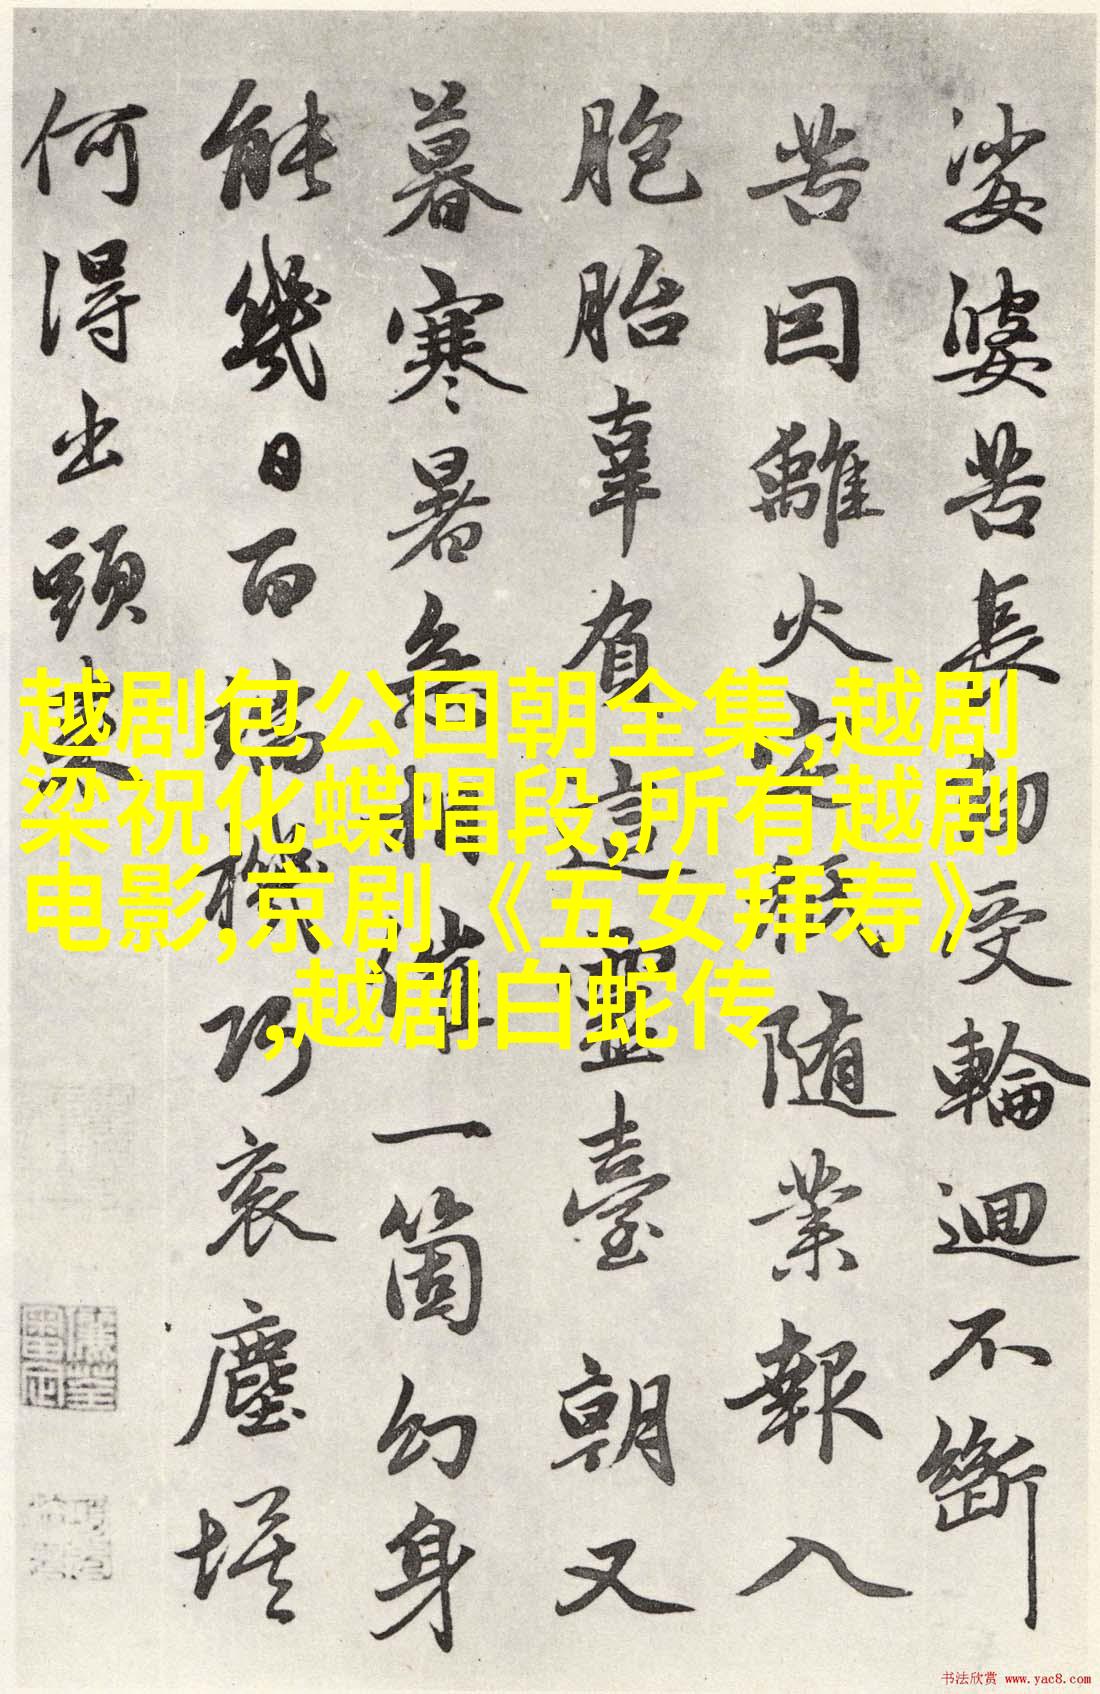 娑婆苦長劫受輪迴不斷
苦囙離火宅秖隨業報入
胞胎辜負這靈臺朝又
暮寒暑急相催一箇幻身
能幾日百端機巧衮塵埃
何得出頭來
越剧包公回朝全集,越剧
梁祝化蝶唱段,所有越剧
电影,京剧《五女拜寿》
,越剧白蛇传
书法欣赏 www.yac8.com